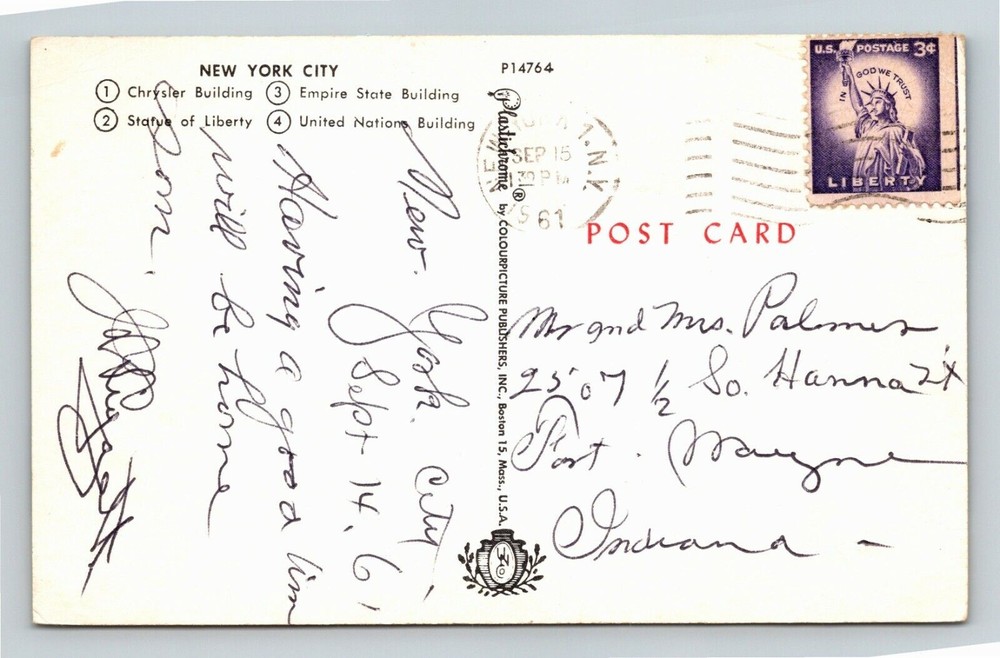 NEW YORK CITY
① Chrysler Building ③ Empire State Building
② Statue of Liberty ④ United Nations Building
P14764
Plastichrome® by COLOURPICTURE PUBLISHERS, INC., Boston 15, Mass., U.S.A.
SEP 15
PM
61
N.Y.
U.S. POSTAGE 3¢
IN GOD WE TRUST
LIBERTY
POST CARD
New. York. City.
Sept 14, 61
Having a good tim
will be home
Soon.
Mr and Mrs. Palmer
2507 ½ So. Hanna St
Fort. Wayne
Indiana –